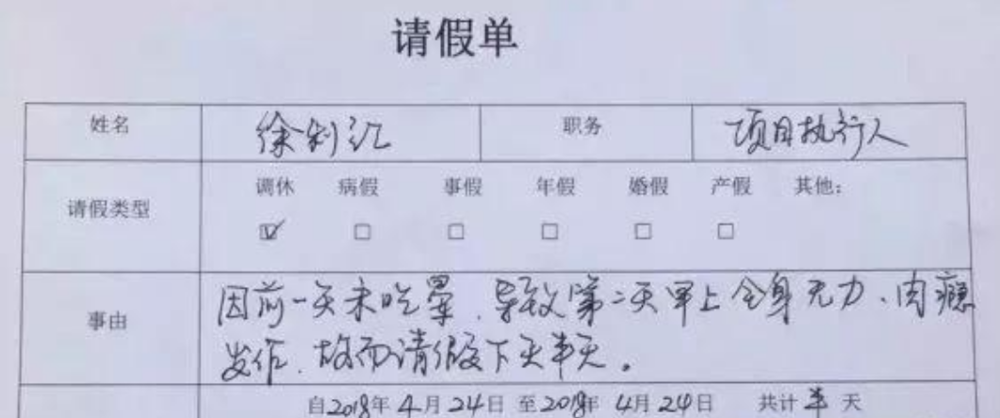 请假单
姓名 徐利江 职务 项目执行人
请假类型 调休 病假 事假 年假 婚假 产假 其他:
☑ □ □ □ □ □
事由 因前一天未吃晕,导致第二天早上全身无力、肉瘾
发作,故而请假下天半天。
自2018年4月24日至2018年4月24日 共计半天